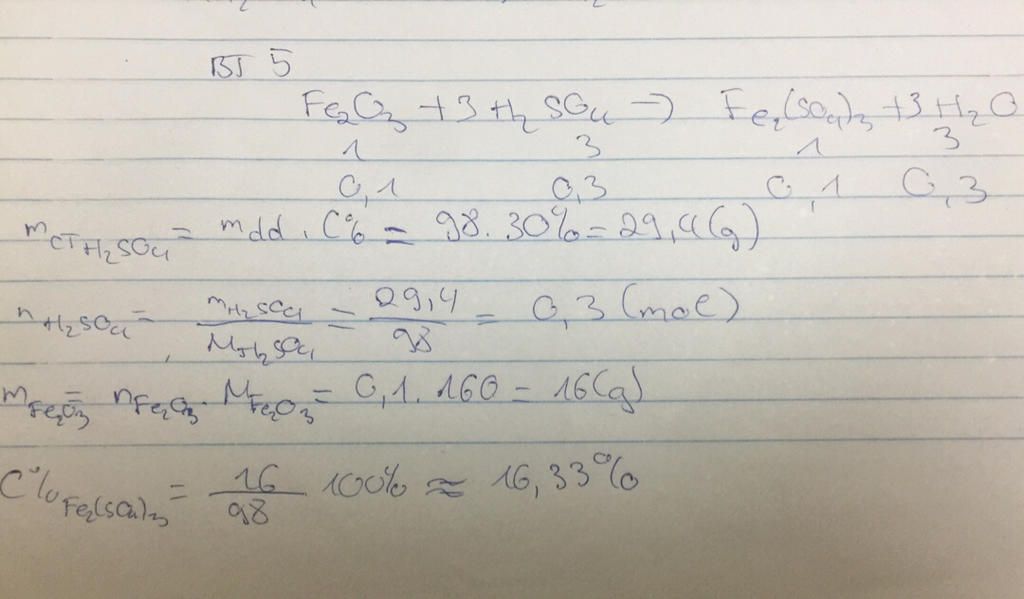 BT 5
Fe2O3 + 3H2SO4 → Fe2(SO4)3 + 3H2O
1 3 1 3
0,1 0,3 0,1 0,3
mCTH2SO4 = mdd . C% = 98.30% = 29,4(g)
nH2SO4 = mH2SO4/MH2SO4 = 29,4/98 = 0,3 (mol)
mFe2O3 = nFe2O3 . MFe2O3 = 0,1.160 = 16(g)
C%Fe2(SO4)3 = 16/98 100% ≈ 16,33%